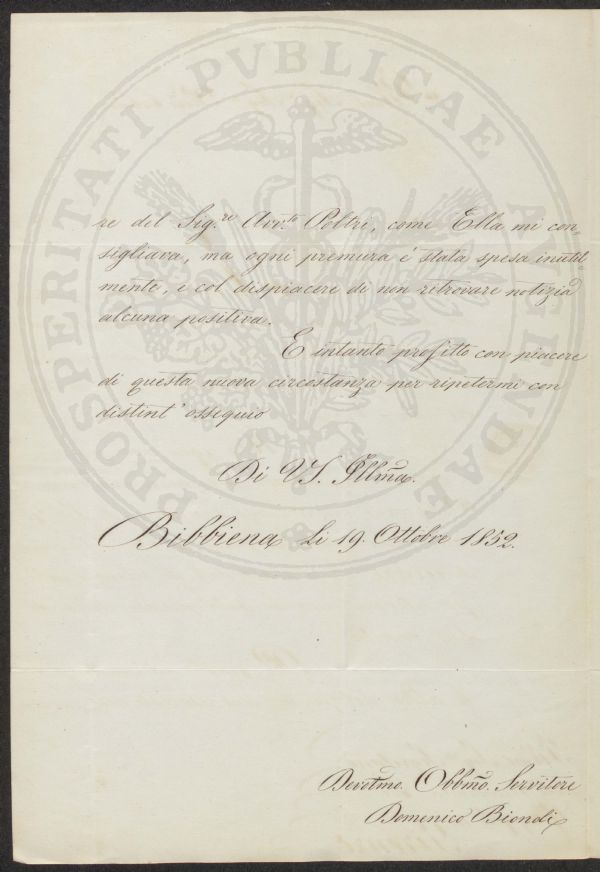 PROSPERITATI PVBLICAE AVGENDAE
re del Sig.re Avv.to Poltri, come Ella mi con=
sigliava, ma ogni premura è stata spesa inutil=
mente, e col dispiacere di non ritrovare notizia
alcuna positiva.
E intanto profitto con piacere
di questa nuova circostanza per ripetermi con
distint'ossequio
Di VS. Illma.
Bibbiena li 19. Ottobre 1852.
Devotmo. Obbmo. Servitore
Domenico Biondi